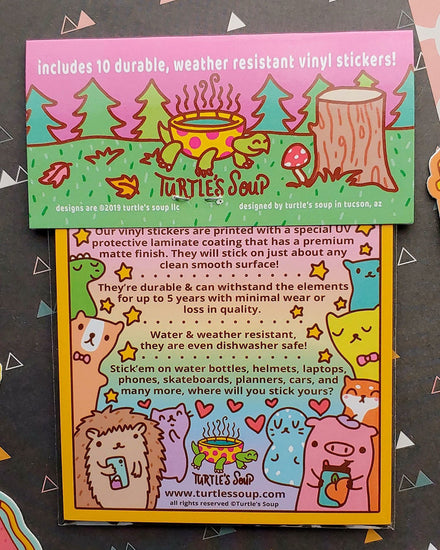 includes 10 durable, weather resistant vinyl stickers!
TURTLE'S SOUP
designs are ©2019 turtle's soup llc
designed by turtle's soup in tucson, az
Our vinyl stickers are printed with a special UV
protective laminate coating that has a premium
matte finish. They will stick on just about any
clean smooth surface!
They're durable & can withstand the elements
for up to 5 years with minimal wear or
loss in quality.
Water & weather resistant,
they are even dishwasher safe!
Stick'em on water bottles, helmets, laptops,
phones, skateboards, planners, cars, and
many more, where will you stick yours?
TURTLE'S SOUP
www.turtlessoup.com
all rights reserved ©Turtle's Soup